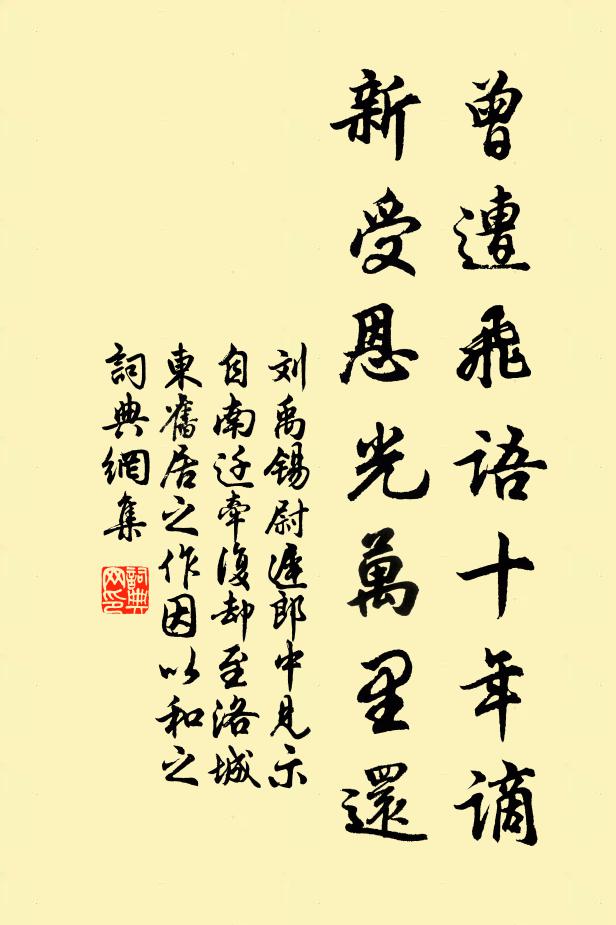 曾遭飛語十年謫
新受恩光萬里還
刘禹锡尉遲郎中見示
自南迁牽復却至洛城
東舊居之作因以和之
詞典網集
詞典
网印